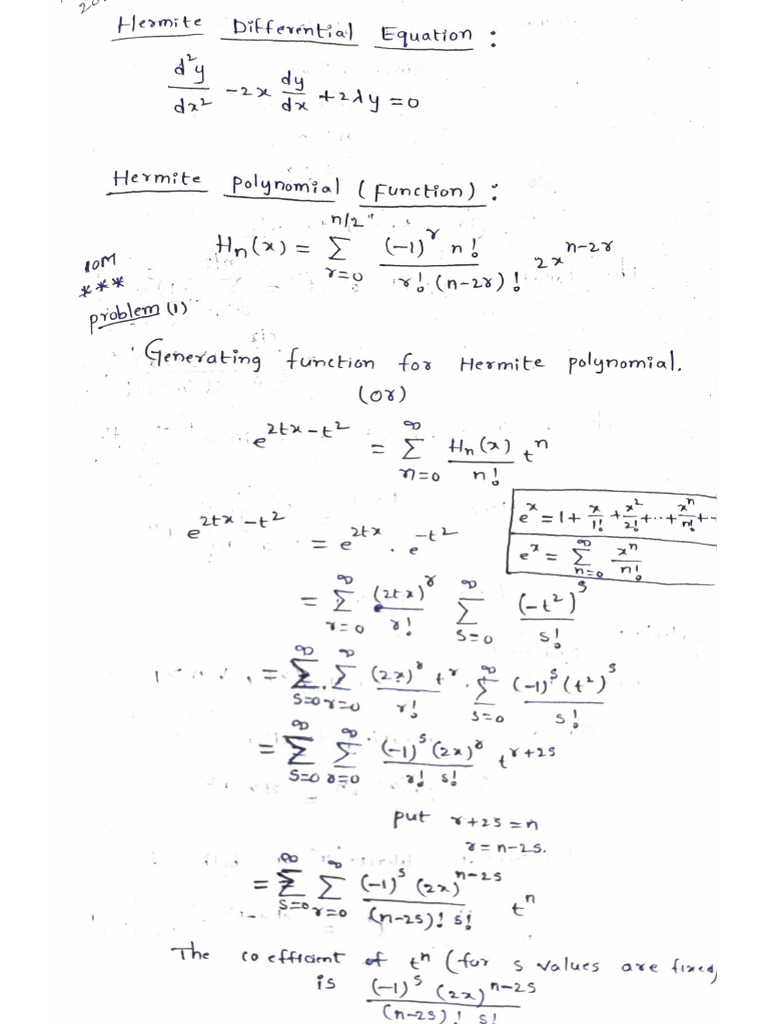 Hermite Differential Equation :
d²y/dx² - 2x dy/dx + 2λy = 0
Hermite polynomial (Function) :
Hn(x) = Σ_{r=0}^{n/2} (-1)^r n! / r! (n-2r)! 2x^{n-2r}
10M
***
problem (1)
Generating function for Hermite polynomial.
(or)
e^{2tx-t²} = Σ_{n=0}^{∞} Hn(x)/n! t^n
e^x = 1 + x/1! + x²/2! + ... + x^n/n! + ..
e^x = Σ_{n=0}^{∞} x^n/n!
e^{2tx-t²} = e^{2tx} . e^{-t²}
= Σ_{r=0}^{∞} (2tx)^r/r! Σ_{s=0}^{∞} (-t²)^s/s!
= Σ_{s=0}^{∞} Σ_{r=0}^{∞} (2x)^r/r! t^r . Σ_{s=0}^{∞} (-1)^s (t²)^s/s!
= Σ_{s=0}^{∞} Σ_{r=0}^{∞} (-1)^s (2x)^r / r! s! t^{r+2s}
put r+2s = n
r = n-2s.
= Σ_{s=0}^{∞} Σ_{r=0}^{∞} (-1)^s (2x)^{n-2s} / (n-2s)! s! t^n
The coefficient of t^n (for s values are fixed)
is (-1)^s (2x)^{n-2s} / (n-2s)! s!